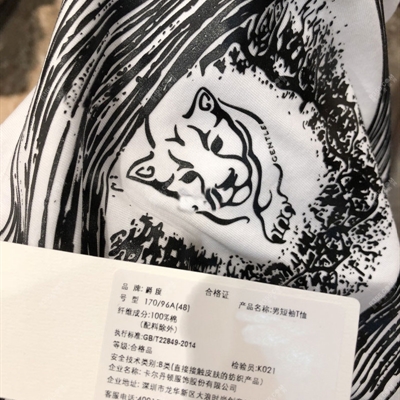 GENTLEF
合格证
品 牌:爵度
产品名称:男短袖T恤
号 型 170/96A(48)
纤维成分:100%棉
(配料除外)
执行标准:GB/T22849-2014
检验员:K021
等级:合格品
安全技术类别:B类(直接接触皮肤的纺织产品)
企业名称:卡尔丹顿服饰股份有限公司
企业地址:深圳市龙华新区大浪时尚创
客服电话:400